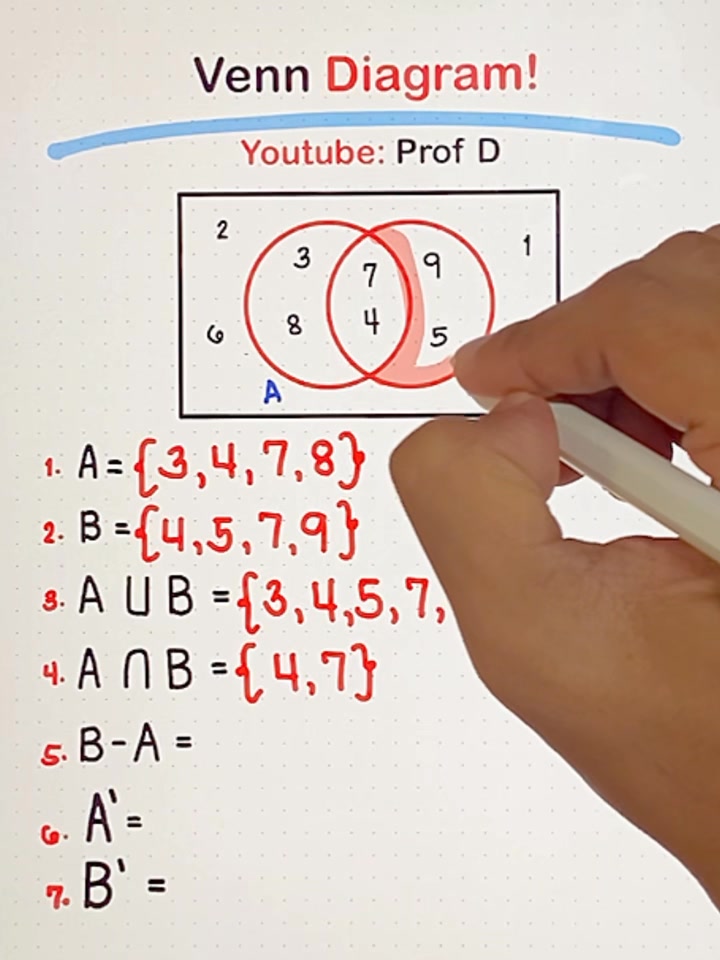 Venn Diagram!
Youtube: Prof D
2
1
3
7
9
8
4
5
6
A
1. A = {3,4,7,8}
2. B = {4,5,7,9}
3. A ∪ B = {3,4,5,7,
4. A ∩ B = {4,7}
5. B - A =
6. A' =
7. B' =